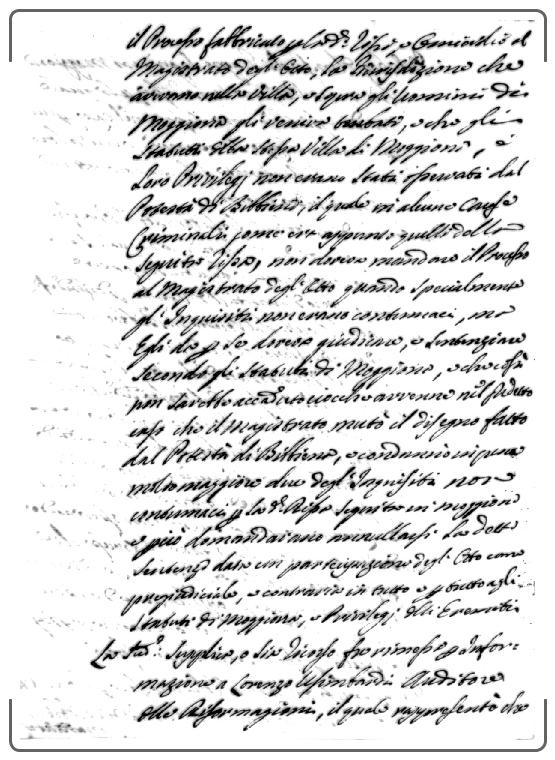 il Processo fabbricato p la d.ª Rissa, e Omicidio al
Magistrato degl' Otto, la Giurisdizione che
avevano nella Villa, e sopra gli Uomini di
Moggiona gli veniva turbata, e che gli
Statuti della stessa Villa di Moggiona, e
loro Privilegj non erano stati osservati dal
Potestà di Bibbiena, il quale in alcune Cause
Criminali, come era appunto quella della
seguita Rissa, non doveva mandare il Processo
al Magistrato degl' Otto quando specialmente
gl' Inquisiti non erano contumaci, ma
Egli da p se doveva giudicare, e sentenziare
secondo gli Statuti di Moggiona, e che così
non sarebbe accaduto ciocchè avvenne nel sudetto
caso che il Magistrato mutò il disegno fatto
dal Potestà di Bibbiena, e condannò in pena
molto maggiore due degl' Inquisiti non
contumaci p la d.ª Rissa seguita in Moggiona
e però domandavano annullarsi la detta
Sentenza data con partecipazione degl' Otto come
pregiudiciale, e contraria in tutto e p tutto agli
Statuti di Moggiona, e Privilegj degli Eremiti
La sud.ª Supplica, o sia Ricorso fu rimesso p infor-
mazione a Lorenzo Usimbardi Auditore
delle Riformagioni, il quale rappresentò che